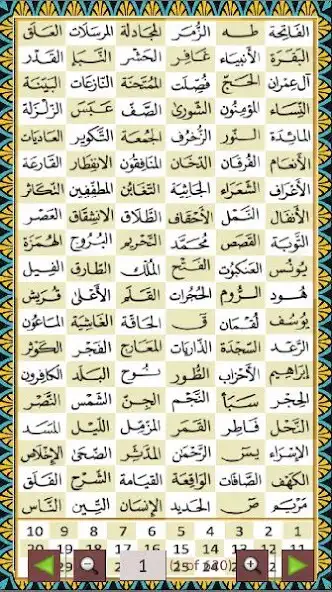 الفَاتِحَة طه الزُّمَر المُجَادلة المُرسَلات العَلَق
البَقَرَة الأنبيَاء غَافِر الحَشْر النَّبَإ القَدْر
آل عِمرَان الحَجّ فُصِّلَت المُمْتَحنَة النّازعَات البَيّنَة
النِّسَاء المؤمنُون الشّورىٰ الصَّفّ عَبَسَ الزلزَلة
المَائدة النُّور الزّخرُف الجُمُعَة التّكوير العَاديَات
الأنعَام الفُرقان الدّخَان المنَافِقون الانفِطار القَارعَة
الأعرَاف الشُّعَرَاء الجَاثيَة التغَابُن المطفّفِين التّكاثر
الأنفَال النَّمْل الأحقاف الطَّلَاق الانشقاق العَصْر
التَّوبَة القَصَص مُحَمَّد التَّحْريم البُرُوج الهُمَزَة
يُونُس العَنكبُوت الفَتْح المُلْك الطّارق الفِيل
هُود الرُّوم الحُجُرات القَلَم الأعْلى قُرَيش
يُوسُف لُقْمَان ق الحَاقّة الغَاشِيَة المَاعُون
الرَّعْد السَّجْدَة الذّاريَات المعَارج الفَجْر الكَوثَر
إبراهِيم الأحْزَاب الطُّور نُوح البَلَد الكافِرون
الحِجْر سَبَأ النَّجْم الجِنّ الشَّمْس النَّصْر
النَّحْل فَاطِر القَمَر المزّمّل اللّيْل المَسَد
الإسْرَاء يسٓ الرَّحمٰن المدَّثِّر الضّحىٰ الإخلاص
الكَهْف الصَّافات الوَاقِعَة القيَامَة الشَّرْح الفَلَق
مَريَم صٓ الحَديد الإنسَان التِّين النَّاس
10 9 8 7 6 5 4 3 2 1
20 19 18 17 16 15 14 13 12 11
29 25 24
1